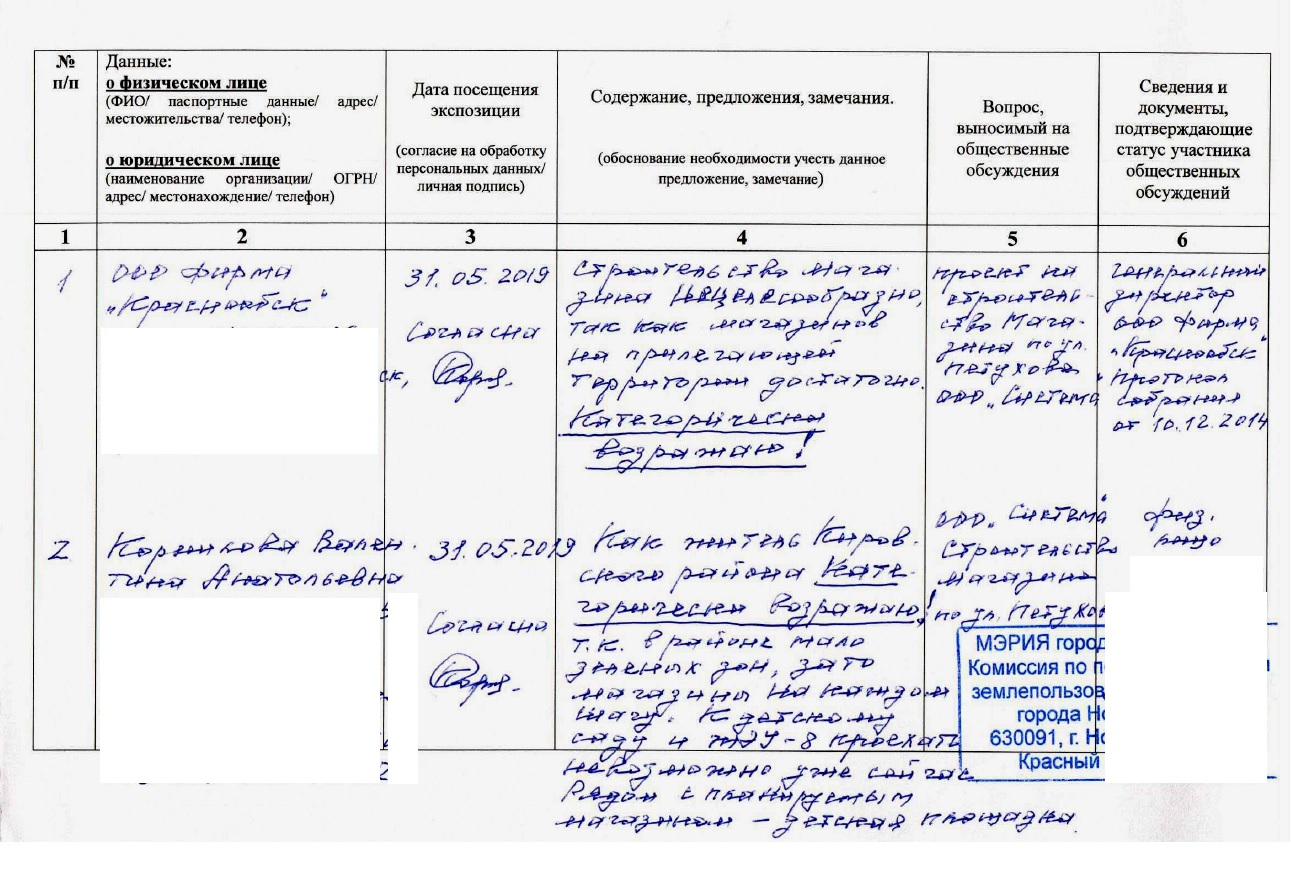 №
п/п
Данные:
о физическом лице
(ФИО/ паспортные данные/ адрес/
местожительства/ телефон);
о юридическом лице
(наименование организации/ ОГРН/
адрес/ местонахождение/ телефон)
Дата посещения
экспозиции
(согласие на обработку
персональных данных/
личная подпись)
Содержание, предложения, замечания.
(обоснование необходимости учесть данное
предложение, замечание)
Вопрос,
выносимый на
общественные
обсуждения
Сведения и
документы,
подтверждающие
статус участника
общественных
обсуждений
1
2
3
4
5
6
1
ООО фирма
„Краснообск"
ск,
31.05.2019
Согласна
Строительство мага-
зина нецелесообразно,
так как магазинов
на прилегающей
территории достаточно.
Категорически
возражаю!
проект на
строитель-
ство мага-
зина по ул.
Петухова
ООО „Система"
генеральный
директор
ООО фирма
„Краснообск"
протокол
собрания
от 10.12.2014
2
Вален-
тина Анатольевна
31.05.2019
Согласна
Как житель Киров-
ского района кате-
горически возражаю!
т.к. в районе мало
зеленых зон, зато
магазины на каждом
шагу. К детскому
саду и проехать
невозможно уже сейчас
Рядом с планируемым
магазином – детская площадка
ООО „Система"
строительство
магазина
по ул. Петухов
физ.
лицо
МЭРИЯ город
Комиссия по п
землепользов
города Но
630091, г. Но
Красный